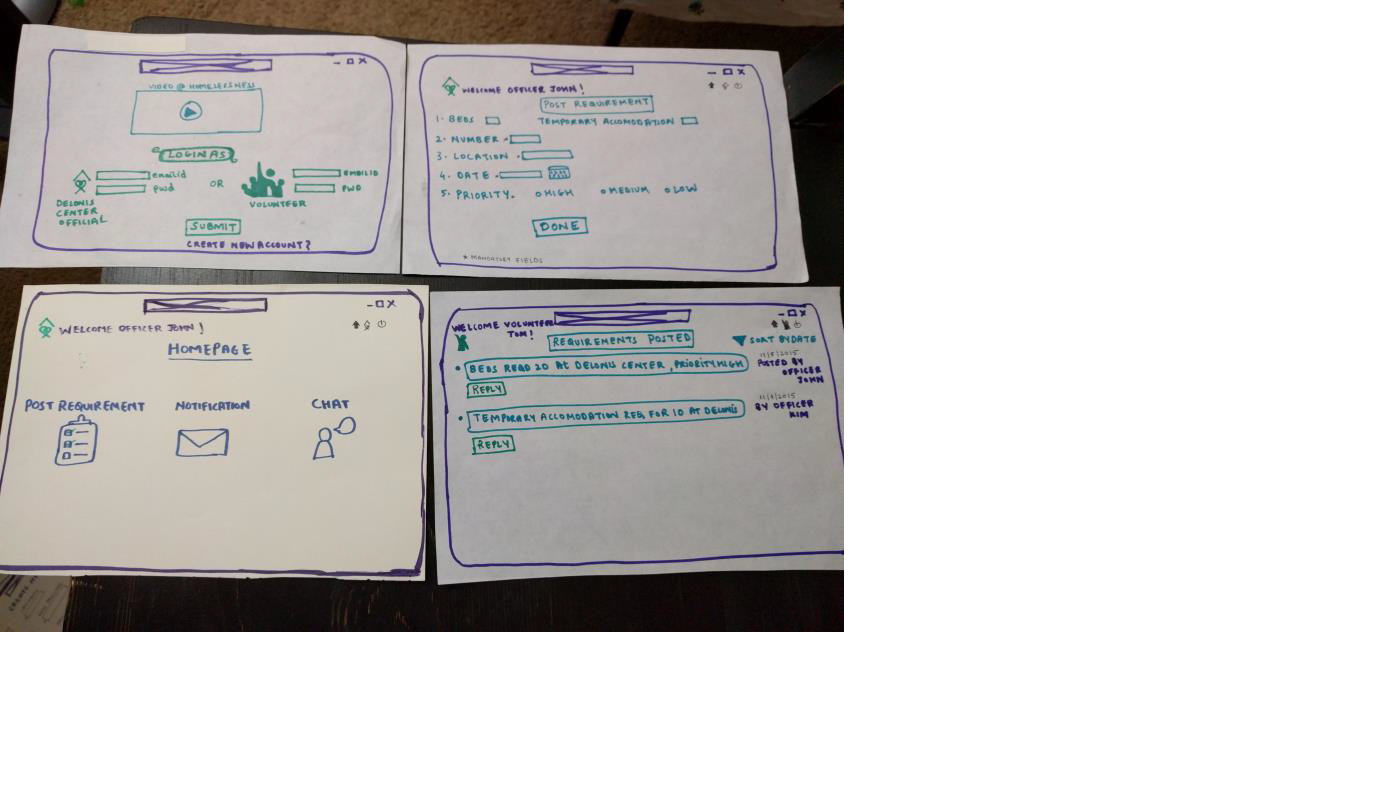 VIDEO @ HOMELESSNESS
LOGIN AS
emailid
pwd
OR
EMAILID
PWD
DELONIS
CENTER
OFFICIAL
VOLUNTEER
SUBMIT
CREATE NEW ACCOUNT?
WELCOME OFFICER JOHN!
POST REQUIREMENT
1. BEDS
TEMPORARY ACCOMODATION
2. NUMBER
3. LOCATION
4. DATE
5. PRIORITY. HIGH MEDIUM LOW
DONE
* MANDATLEY FIELDS
WELCOME OFFICER JOHN!
HOMEPAGE
POST REQUIREMENT NOTIFICATION CHAT
WELCOME VOLUNTEER
TOM!
REQUIREMENTS POSTED
SORT BY DATE
BEDS REQD 20 AT DELONIS CENTER, PRIORITY HIGH
11/5/2015
POSTED BY
OFFICER
JOHN
REPLY
TEMPORARY ACCOMODATION REQ FOR 10 AT DELONIS
BY OFFICER
KIM
REPLY